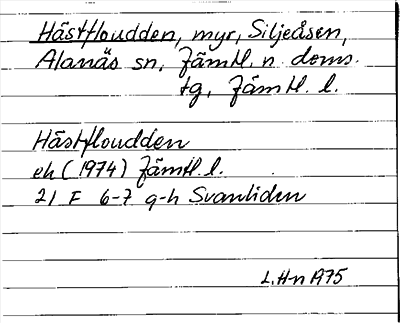 Hästfloudden, myr, Siljeåsen,
Alanäs sn, Jämtl. n. doms.
tg, Jämtl. l.
Hästfloudden
ek (1974) Jämtl. l.
21 F 6-7 g-h Svanliden
L.H-n 1975